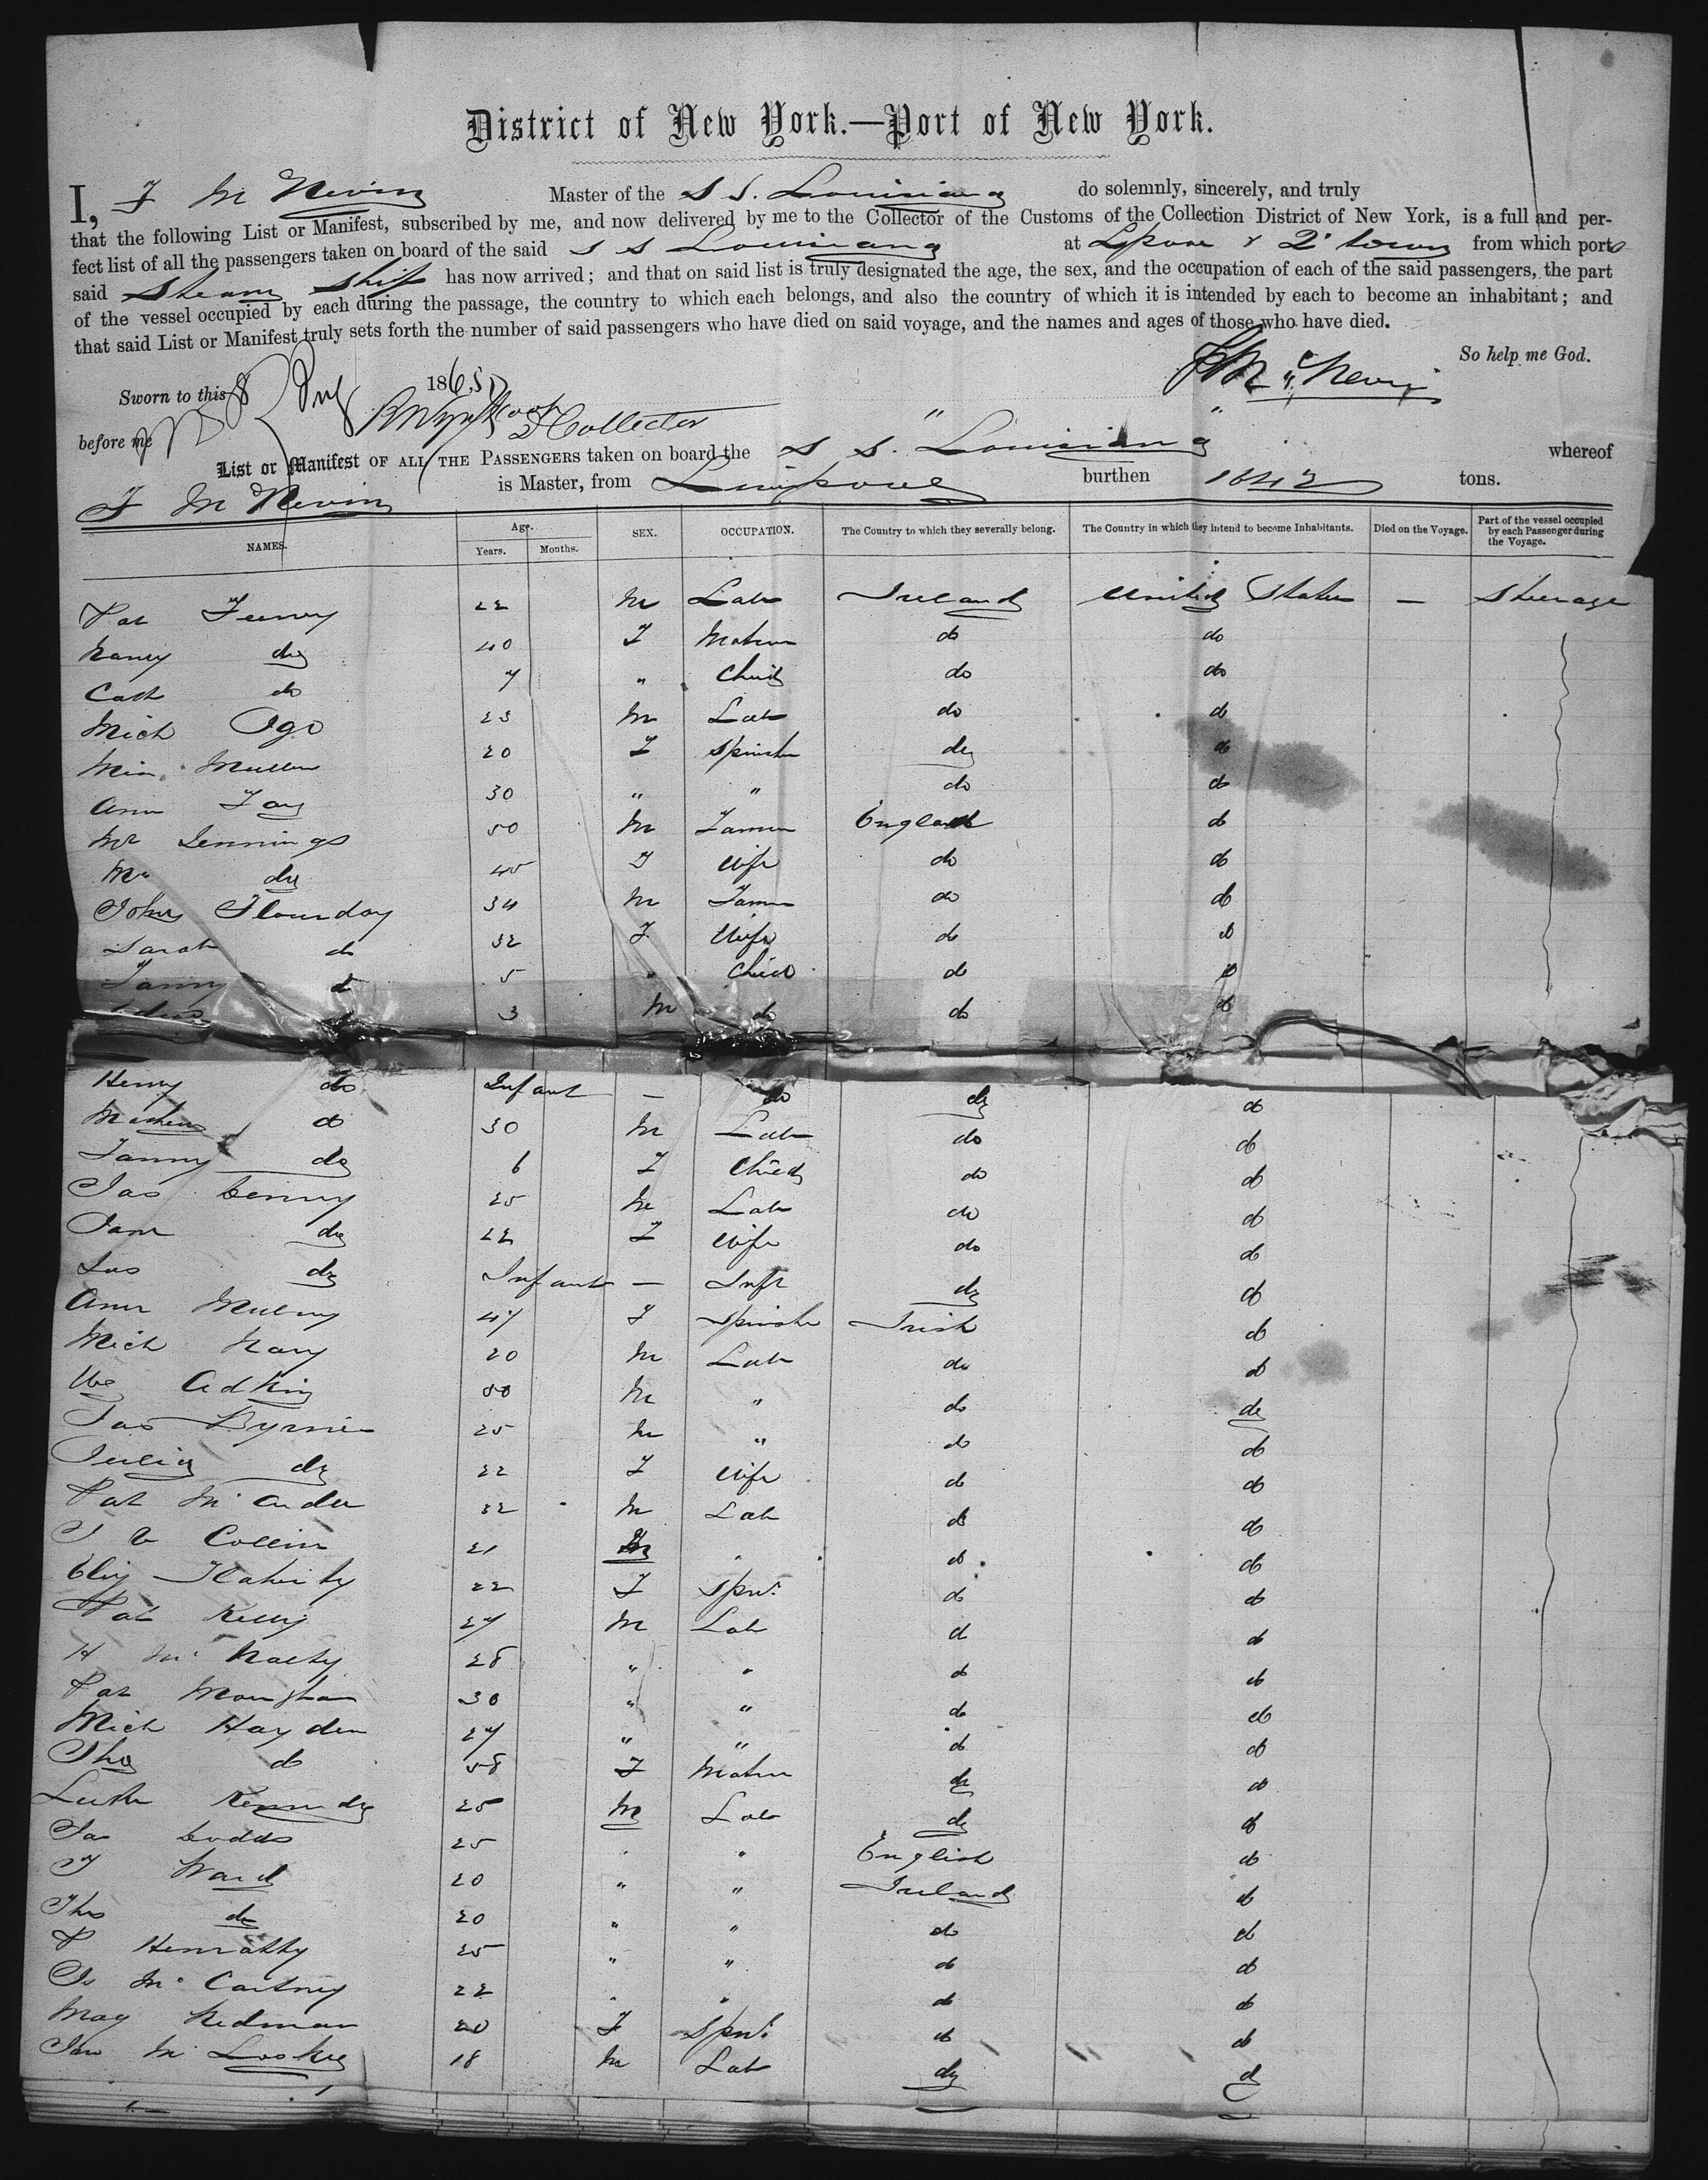 District of New York.—Port of New York.
I, F McNevin Master of the S S. Louisiana do solemnly, sincerely, and truly
that the following List or Manifest, subscribed by me, and now delivered by me to the Collector of the Customs of the Collection District of New York, is a full and per-
fect list of all the passengers taken on board of the said S S Louisiana at Lpool & Q'town from which ports
said Steam Ship has now arrived; and that on said list is truly designated the age, the sex, and the occupation of each of the said passengers, the part
of the vessel occupied by each during the passage, the country to which each belongs, and also the country of which it is intended by each to become an inhabitant; and
that said List or Manifest truly sets forth the number of said passengers who have died on said voyage, and the names and ages of those who have died.
So help me God.
Sworn to this 8 1865
before me Collector
List or Manifest OF ALL THE PASSENGERS taken on board the S S. "Louisiana" whereof
F McNevin is Master, from Liverpool burthen tons.
NAMES. Age. Years. Months. SEX. OCCUPATION. The Country to which they severally belong. The Country in which they intend to become Inhabitants. Died on the Voyage. Part of the vessel occupied by each Passenger during the Voyage.
Pat 22 M Lab Ireland United States — Steerage
Nancy do 40 F Matron do do
Cath do 7 " Child do do
Mich 23 M Lab do do
Mullen 20 F Spinster do do
Ann Fay 30 " " do do
Mr Jennings 50 M Farmer England do
Mrs do 45 F Wife do do
John Flounday 34 M Farmer do do
Sarah do 32 F Wife do do
Fanny do 5 " Child do do
3 M do do do
Henry do Infant — do do do
Mathew do 30 M Lab do do
Fanny do 6 F Child do do
Jas 25 M Lab do do
Jane do 22 F Wife do do
do Infant — Inft do do
Ann 47 F Spinster Irish do
Mich 20 M Lab do do
Adkin 50 M " do do
Jas Byrne 25 M " do do
Julia do 22 F Wife do do
Pat 22 M Lab do do
Collin 21 M " do do
Eliz Flaherty 22 F Spin. do do
Pat Kelly 27 M Lab do do
H McNally 28 " " do do
Pat Monaghan 30 " " do do
Mich Hayden 27 " " do do
do 58 F Matron do do
Luke Kennedy 25 M Lab do do
Jas 25 " " English do
Ward 20 " " Ireland do
Thos do 20 " " do do
P Henratty 25 " " do do
McCartney 22 " " do do
Mag Redman 20 F Spin. do do
18 M Lab do do